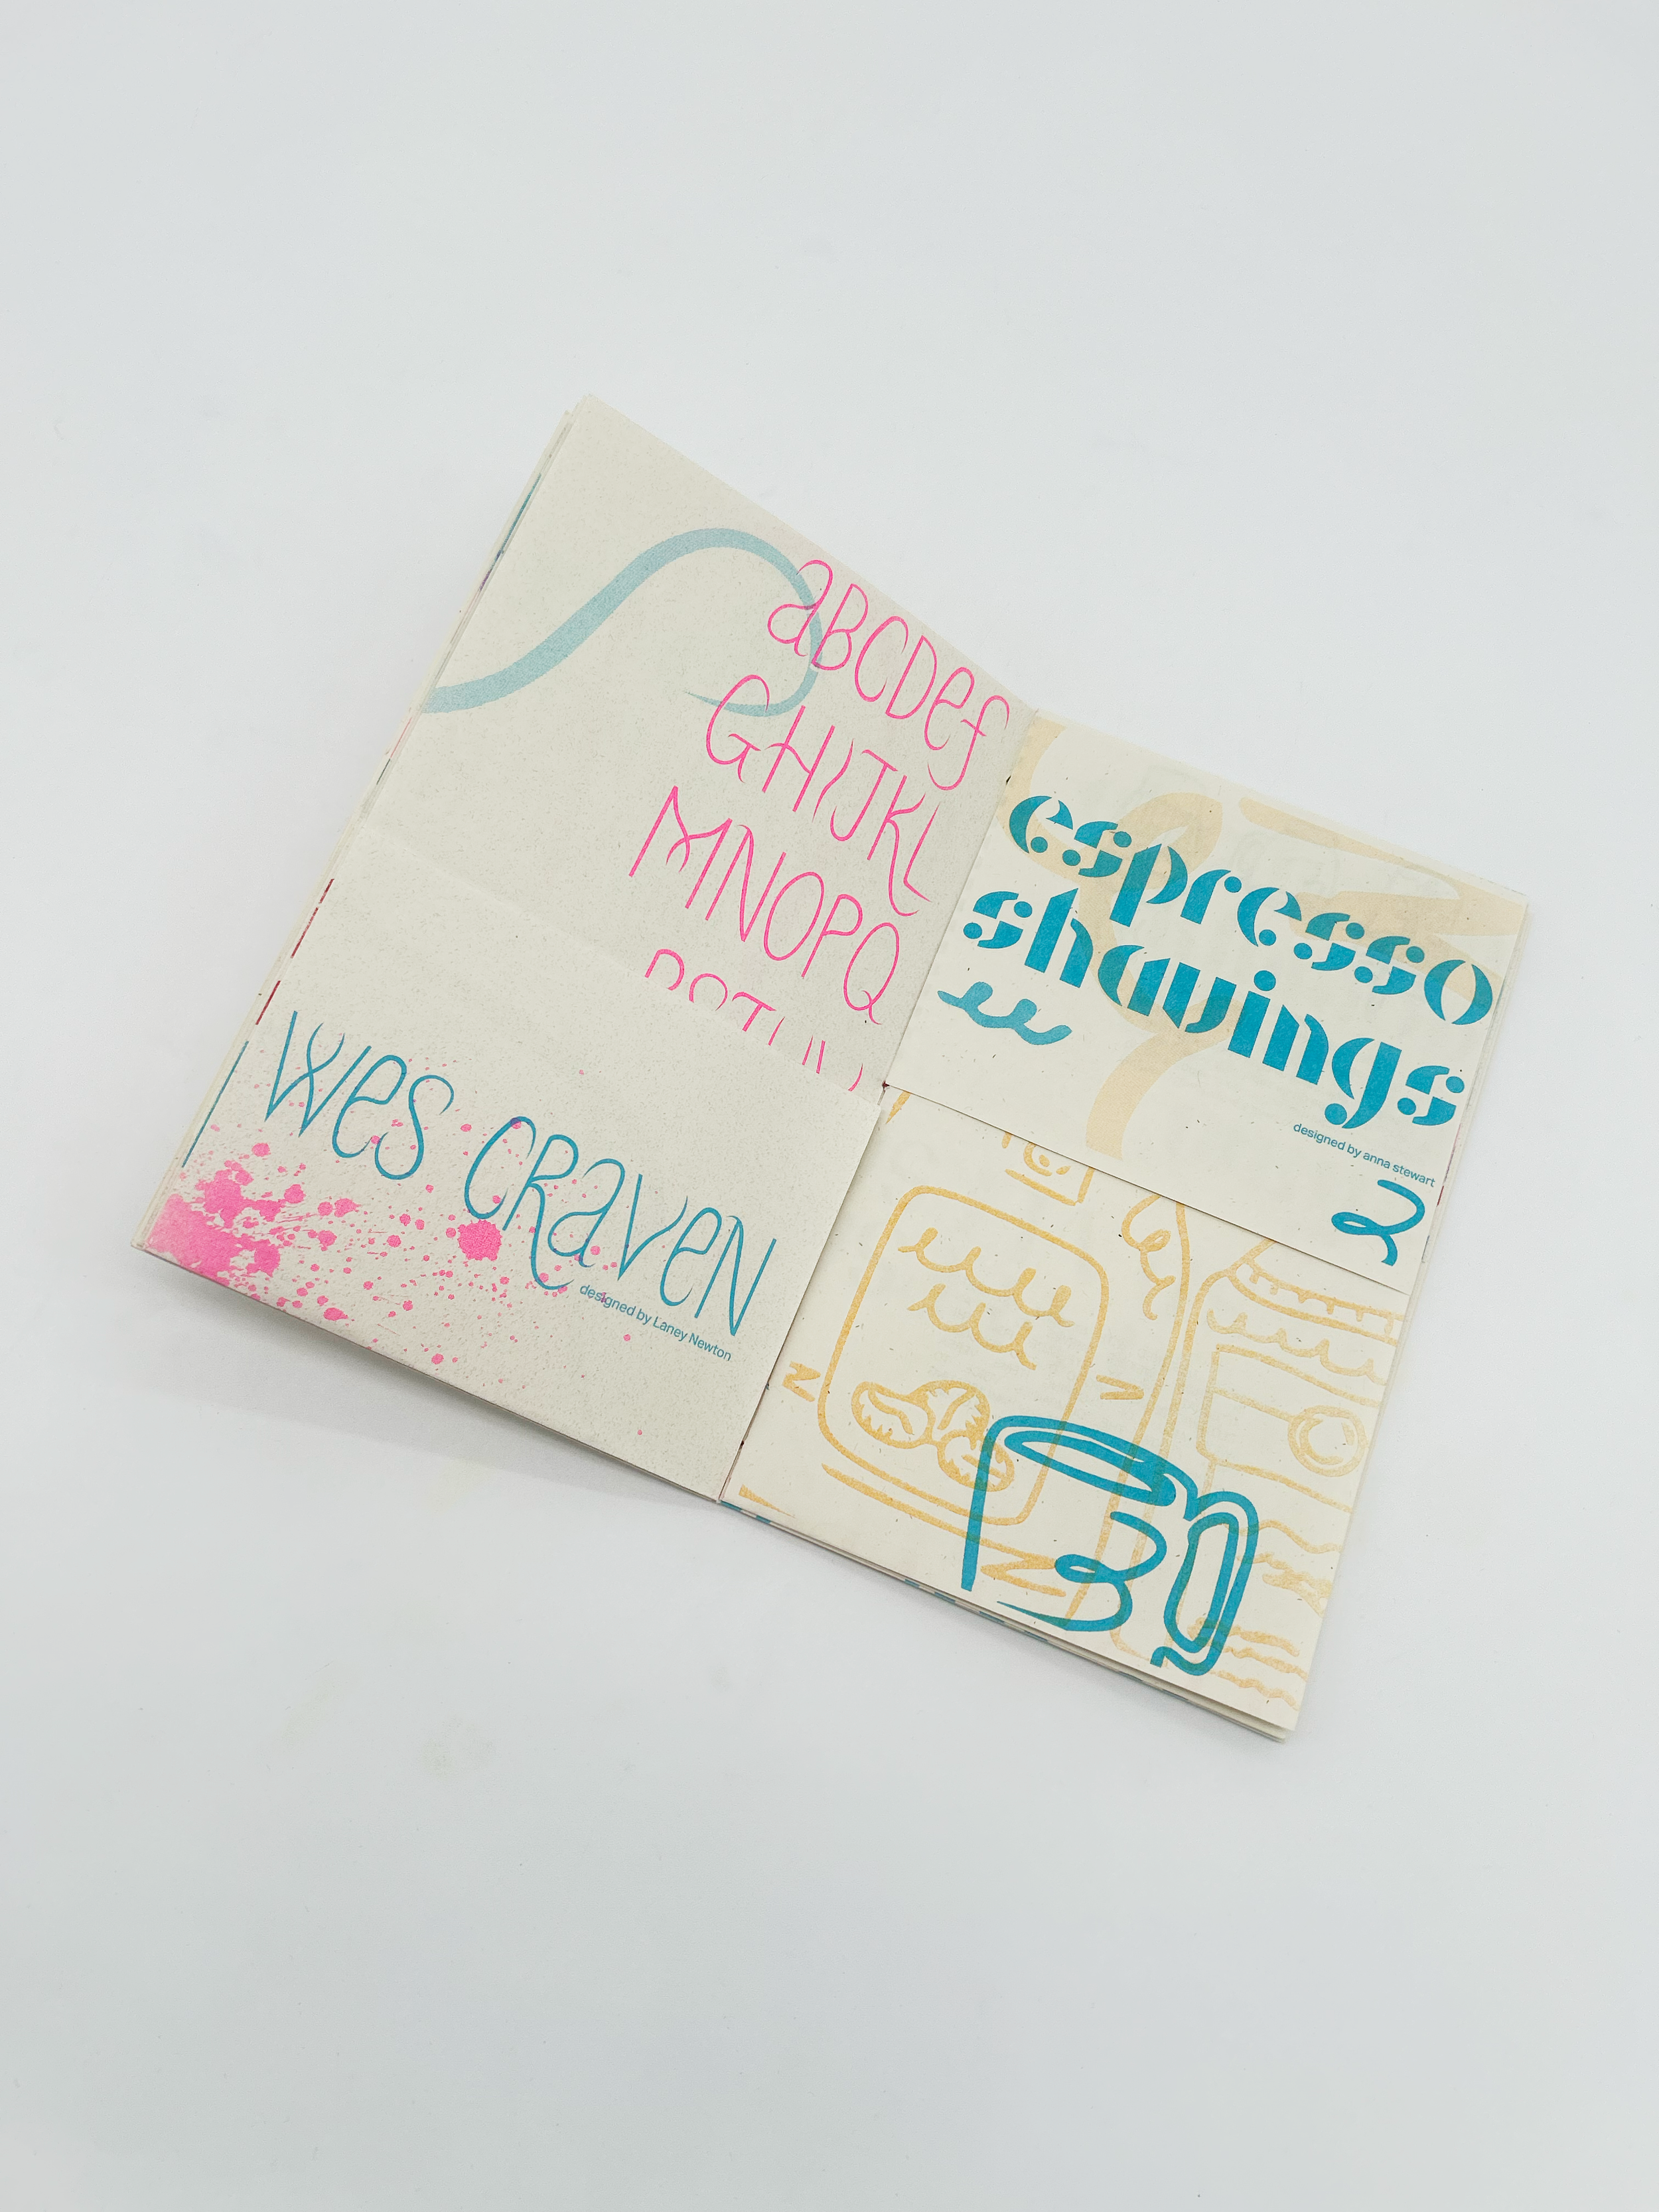 aBCDef
GHIJKL
MNOPQ
wes CRaveN
designed by Laney Newton
espresso
shavings
designed by anna stewart